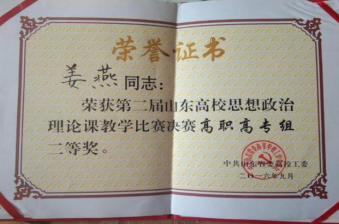 荣誉证书
姜燕同志：
荣获第二届山东高校思想政治
理论课教学比赛决赛高职高专组
二等奖。
中共山东省委高校工委
二〇一六年九月